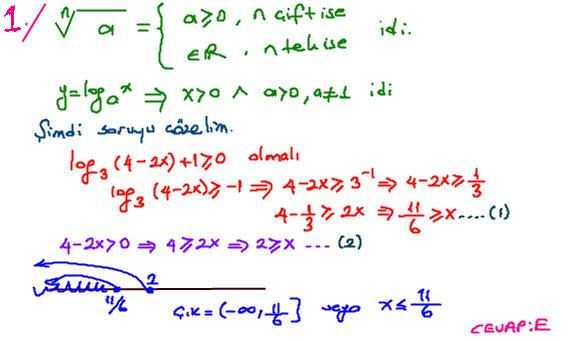 1./ ⁿ√a = { a≥0, n çift ise
∈R, n tek ise idi.
y=logₐx ⇒ x>0 ∧ a>0, a≠1 idi
Şimdi soruyu çözelim.
log₃(4-2x)+1≥0 olmalı
log₃(4-2x)≥-1 ⇒ 4-2x≥3⁻¹ ⇒ 4-2x≥1/3
4-1/3≥2x ⇒ 11/6≥x....(1)
4-2x>0 ⇒ 4≥2x ⇒ 2≥x ... (2)
11/6 2
Ç.K=(-∞, 11/6] veya x≤11/6
CEVAP:E